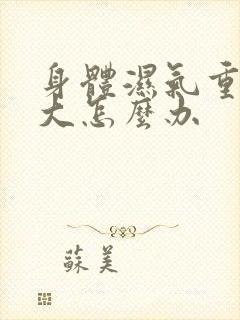 身體濕氣重
大怎麼办
蘇美